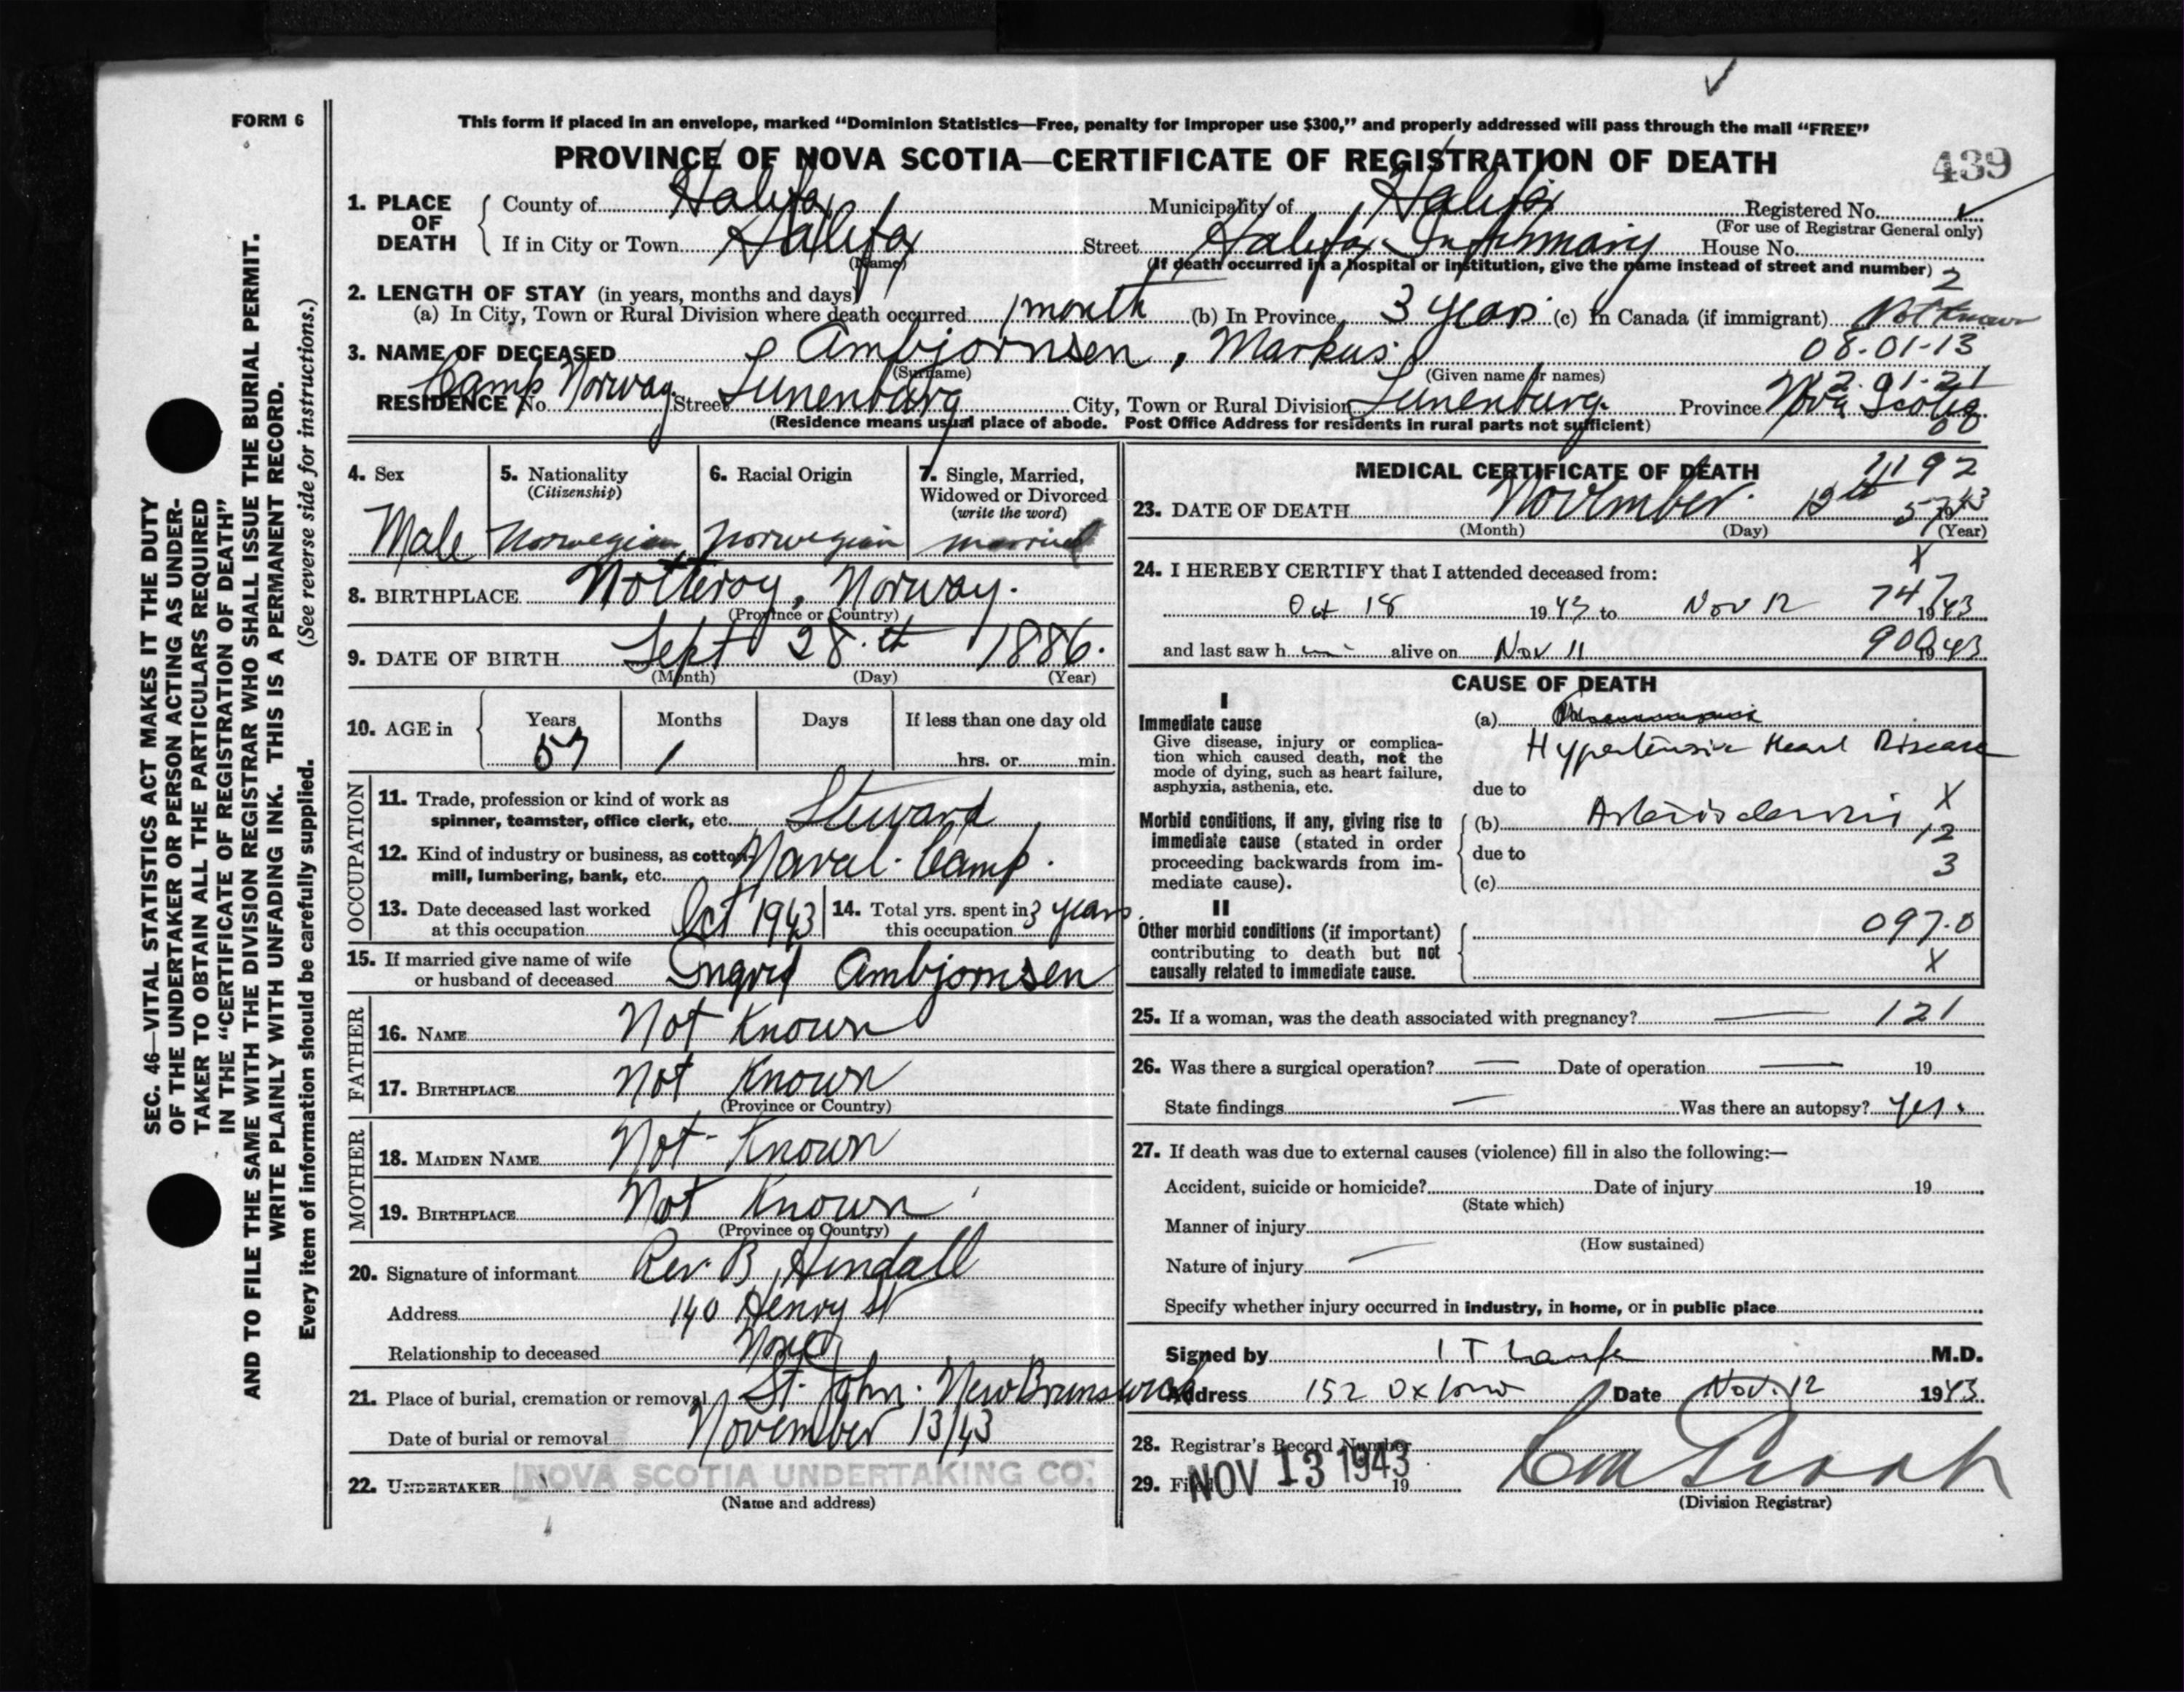 FORM 6
This form if placed in an envelope, marked “Dominion Statistics—Free, penalty for improper use $300,” and properly addressed will pass through the mail “FREE”
PROVINCE OF NOVA SCOTIA—CERTIFICATE OF REGISTRATION OF DEATH
439
1. PLACE OF DEATH County of Halifax Municipality of Halifax Registered No.
(For use of Registrar General only)
If in City or Town Halifax Street Halifax Infirmary House No.
(Name) (If death occurred in a hospital or institution, give the name instead of street and number)
2
2. LENGTH OF STAY (in years, months and days)
(a) In City, Town or Rural Division where death occurred 1 month (b) In Province 3 years (c) In Canada (if immigrant) Not Known
3. NAME OF DECEASED Ambjornsen, Markus 08-01-13
(Surname) (Given name or names)
2-01-21
RESIDENCE No. Camp Norway Street Lunenburg City, Town or Rural Division Lunenburg Province Nova Scotia
00
(Residence means usual place of abode. Post Office Address for residents in rural parts not sufficient)
4. Sex
Male
5. Nationality
(Citizenship)
Norwegian
6. Racial Origin
Norwegian
7. Single, Married,
Widowed or Divorced
(write the word)
married
8. BIRTHPLACE Notteroy, Norway.
(Province or Country)
9. DATE OF BIRTH Sept 28.th 1886.
(Month) (Day) (Year)
10. AGE in Years Months Days If less than one day old
57 1 hrs. or min.
OCCUPATION
11. Trade, profession or kind of work as
spinner, teamster, office clerk, etc. Steward
12. Kind of industry or business, as cotton-
mill, lumbering, bank, etc. Naval Camp.
13. Date deceased last worked
at this occupation Oct 1943
14. Total yrs. spent in
this occupation 3 years.
15. If married give name of wife
or husband of deceased Ingrid Ambjornsen
FATHER
16. NAME Not Known
17. BIRTHPLACE Not Known
(Province or Country)
MOTHER
18. MAIDEN NAME Not Known
19. BIRTHPLACE Not Known
(Province or Country)
20. Signature of informant Rev. B.
Address 140 Henry St
Relationship to deceased None
21. Place of burial, cremation or removal St. John. New Brunswick
Date of burial or removal November 13/43
22. UNDERTAKER NOVA SCOTIA UNDERTAKING CO.
(Name and address)
MEDICAL CERTIFICATE OF DEATH
1192
23. DATE OF DEATH November 12th 1943
57
(Month) (Day) (Year)
X
24. I HEREBY CERTIFY that I attended deceased from:
747
Oct 18 1943 to Nov 12 1943
900
and last saw h im alive on Nov 11 1943
CAUSE OF DEATH
I
Immediate cause
Give disease, injury or complica-
tion which caused death, not the
mode of dying, such as heart failure,
asphyxia, asthenia, etc.
(a)
Hypertensive Heart Disease
due to
Morbid conditions, if any, giving rise to
immediate cause (stated in order
proceeding backwards from im-
mediate cause).
(b) Arteriosclerosis X
12
due to
3
(c)
II
Other morbid conditions (if important)
contributing to death but not
causally related to immediate cause.
097.0
X
25. If a woman, was the death associated with pregnancy? — 121
26. Was there a surgical operation? — Date of operation — 19
State findings — Was there an autopsy? Yes.
27. If death was due to external causes (violence) fill in also the following:—
Accident, suicide or homicide? Date of injury 19
(State which)
Manner of injury
(How sustained)
Nature of injury —
Specify whether injury occurred in industry, in home, or in public place
Signed by M.D.
Address 152 Oxford Date Nov. 12 1943
28. Registrar's Record Number
29. Filed NOV 13 1943 19
(Division Registrar)
SEC. 46—VITAL STATISTICS ACT MAKES IT THE DUTY
OF THE UNDERTAKER OR PERSON ACTING AS UNDER-
TAKER TO OBTAIN ALL THE PARTICULARS REQUIRED
IN THE “CERTIFICATE OF REGISTRATION OF DEATH”
AND TO FILE THE SAME WITH THE DIVISION REGISTRAR WHO SHALL ISSUE THE BURIAL PERMIT.
WRITE PLAINLY WITH UNFADING INK. THIS IS A PERMANENT RECORD.
Every item of information should be carefully supplied. (See reverse side for instructions.)